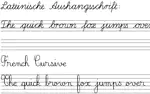 Lateinische Aushangschrift:
The quick brown fox jumps over
French Cursive
The quick brown fox jumps over